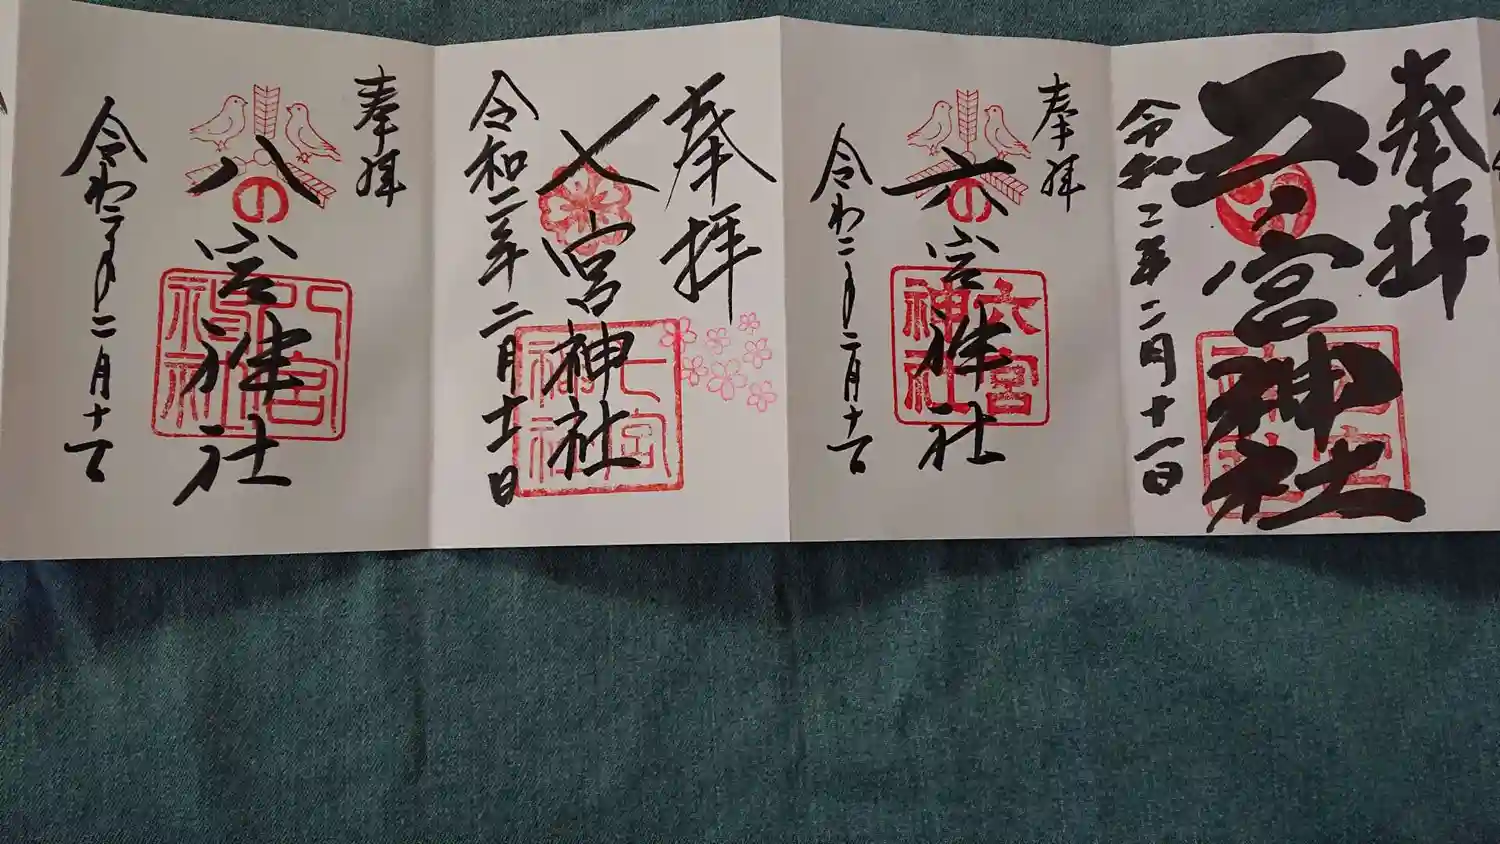 奉拝
五宮神社
令和二年二月十一日
奉拝
六宮神社
六宮
神社
令わ二年二月十一日
奉拝
七宮神社
七宮
神社
令和二年二月十一日
奉拝
八宮神社
八宮
神社
令わ二年二月十一日